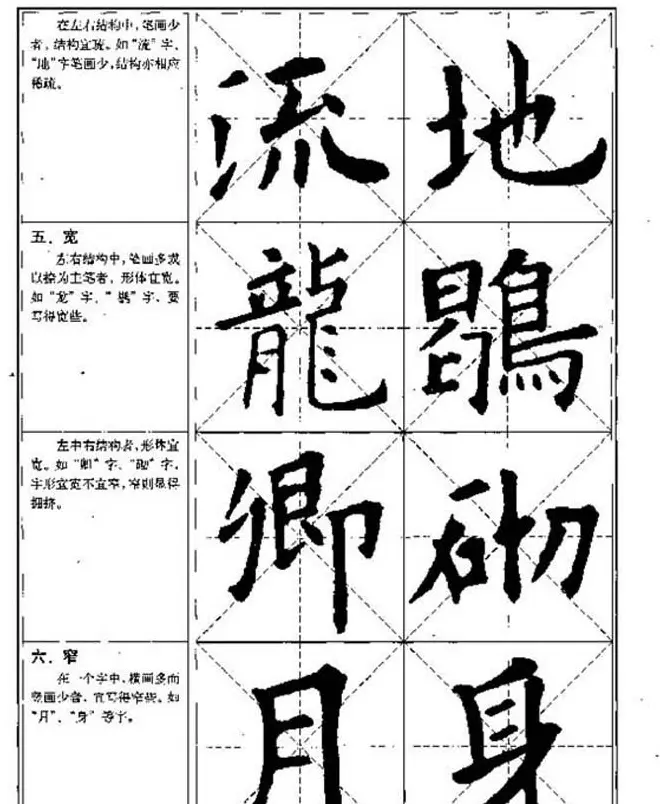 在左右结构中，笔画少
者，结构宜疏。如“流”字，
“地”字笔画少，结构亦相应
稀疏。
流 地
五．宽
左右结构中，笔画多或
以捺为主笔者，形体宜宽。
如“龙”字、“鹍”字，要
写得宽些。
龍 鵾
左中右结构者，形体宜
宽。如“卿”字、“砌”字，
字形宜宽不宜窄，窄则显得
拥挤。
卿 砌
六．窄
在一个字中，横画多而
竖画少者，宜写得窄些。如
“月”、“身”等字。
月 身